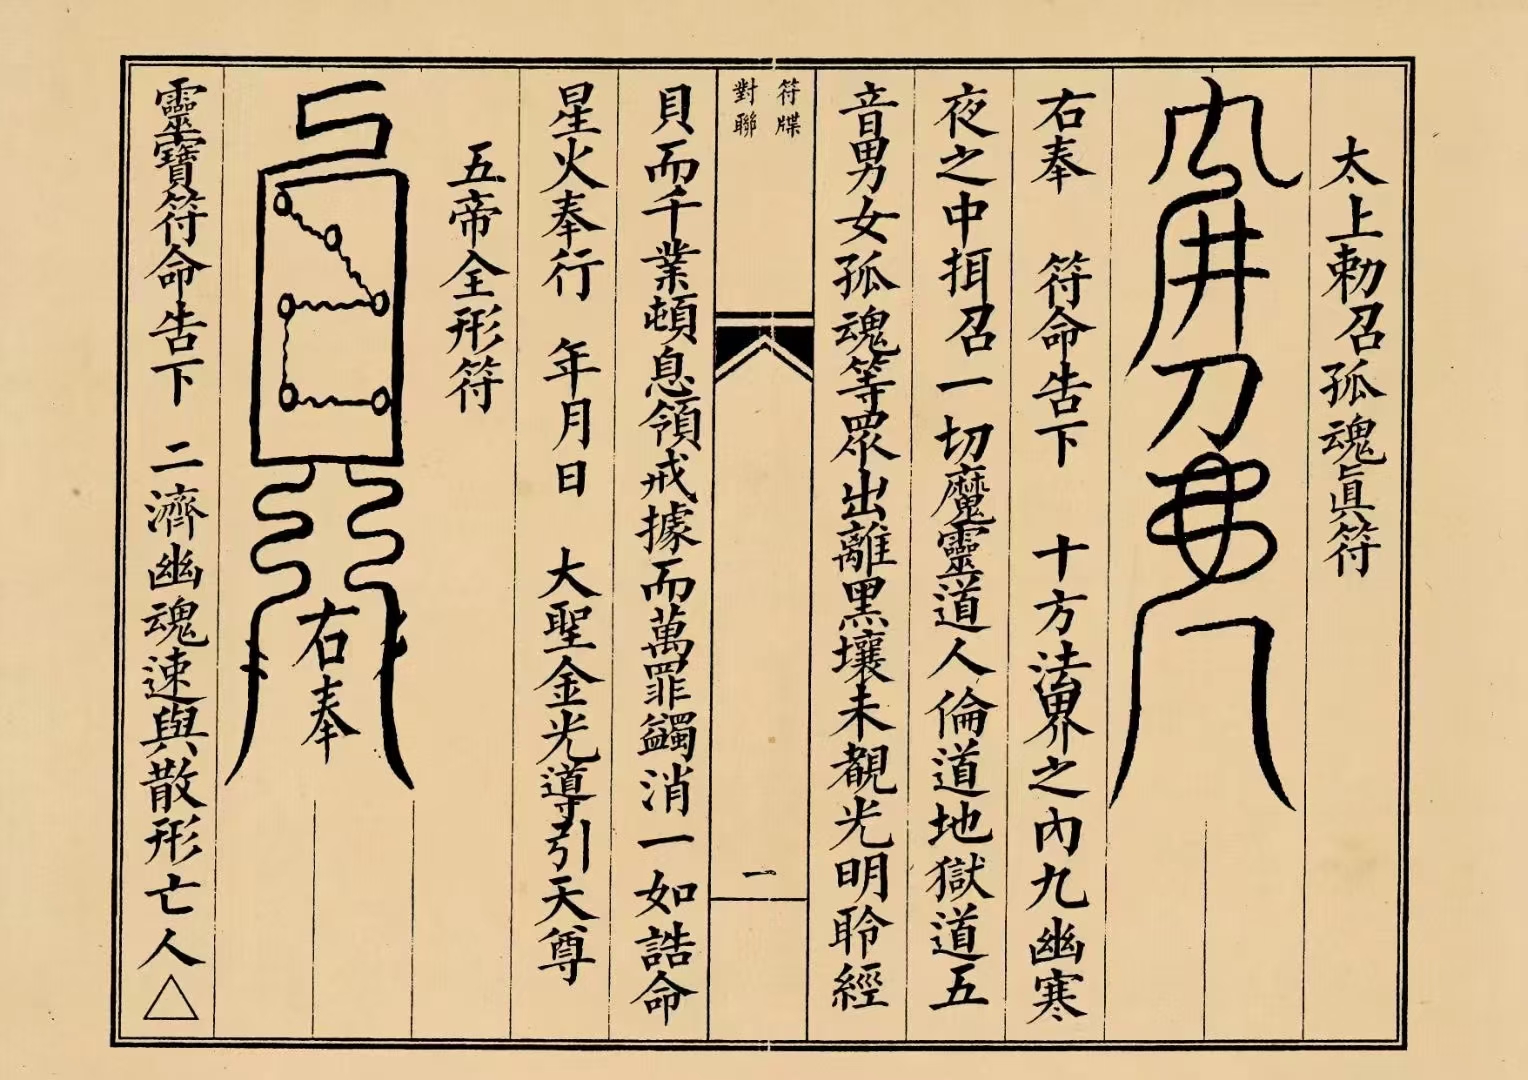 太上勅召孤魂眞符
右奉　符命告下　十方法界之內九幽寒
夜之中拑召一切魔靈道人倫道地獄道五
音男女孤魂等眾出離黑壤未覩光明聆經
符牒
對聯
一
貝而千業頓息領戒據而萬罪蠲消一如誥命
星火奉行　年月日　大聖金光導引天尊
五帝全形符
右奉
靈寶符命告下　二濟幽魂速與散形亡人△